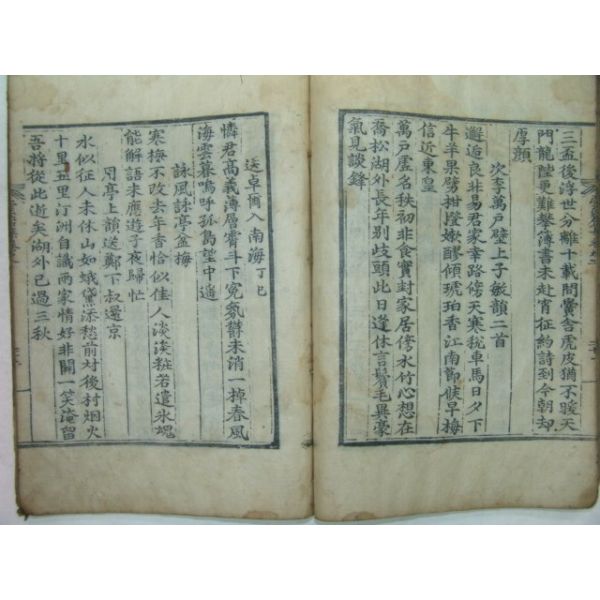 三盃後浮世分離十載間黌舍虎皮猶不暖天
門龍陛更難攀簿書未赴宵征約詩到今朝却
厚顔
次李萬戶壁上子敏韻二首
邂逅良非易君家幸路傍天寒秣車馬日夕下
牛羊果劈柑橙嫰醪傾琥珀香江南鄭餤早梅
信近東皇
萬戶虛名秩初非食實封家居傍水竹心想在
喬松湖外長年別岐頭此日逢休言鬂毛異豪
氣見談鋒
送卓爾入南海丁巳
憐君高義薄層霄斗下冤氛讋未消一掉春風
海雲暮嗚呼孤島望中遙
詠風詠亭盆梅
寒梅不改去年香恰似佳人淡淡粧若遣氷魂
能解語未應遊子夜歸忙
月亭上韻送鄭下叔還京
水似征人未休山如蛾黛添愁前村後村烟火
十里五里汀洲自識兩家情好非關一笑淹留
吾將從此逝矣湖外已過三秋